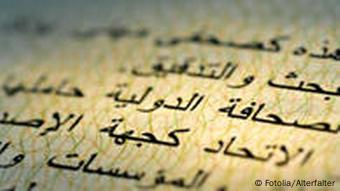 هذه كصحفي
بحث والتدقيق
لصحافة الدولية حاملي
الاتحاد كجهة الإصد
المؤسسات وا
© Fotolia/Alterfalter